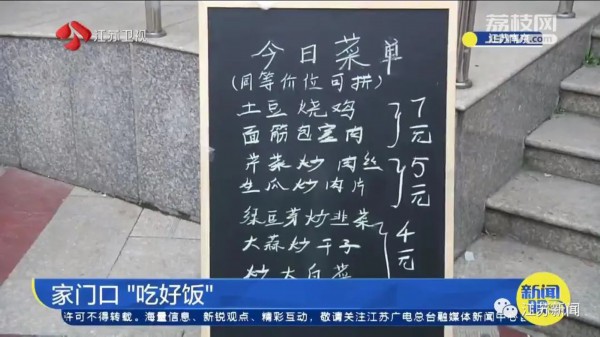 江苏卫视
荔枝网
江苏南京
今日菜单
(同等价位可拼)
土豆烧鸡
面筋包塞肉
7元
芹菜炒肉丝
生瓜炒肉片
5元
绿豆芽炒韭菜
大蒜炒干子
炒大白菜
4元
家门口 "吃好饭"
新闻
江苏新闻
许可不得转载。海量信息、新锐观点、精彩互动，敬请关注江苏广电总台融媒体新闻中心